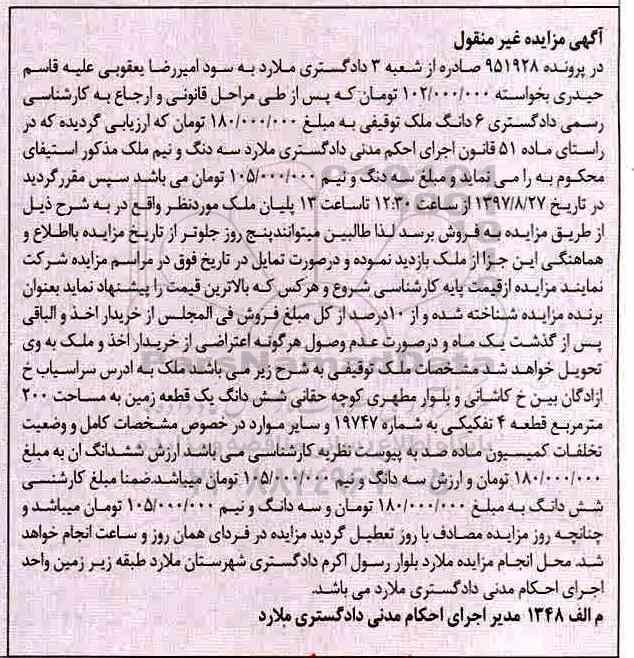 آگهی مزایده غیر منقول
در پرونده ۹۵۱۹۲۸ صادره از شعبه ۳ دادگستری ملارد به سود امیررضا یعقوبی علیه قاسم
حیدری بخواسته ۱۰۲/۰۰۰/۰۰۰ تومان که پس از طی مراحل قانونی و ارجاع به کارشناسی
رسمی دادگستری ۶ دانگ ملک توقیفی به مبلغ ۱۸۰/۰۰۰/۰۰۰ تومان که ارزیابی گردیده که در
راستای ماده ۵۱ قانون اجرای احکم مدنی دادگستری ملارد سه دنگ و نیم ملک مذکور استیفای
محکوم به را می نماید و مبلغ سه دنگ و نیم ۱۰۵/۰۰۰/۰۰۰ تومان می باشد سپس مقرر گردید
در تاریخ ۱۳۹۷/۸/۲۷ از ساعت ۱۲:۳۰ تاساعت ۱۳ پلیان ملک موردنظر واقع در به شرح ذیل
از طریق مزایده به فروش برسد لذا طالبین میتوانندپنج روز جلوتر از تاریخ مزایده بااطلاع و
هماهنگی این جزا از ملک بازدید نموده و درصورت تمایل در تاریخ فوق در مراسم مزایده شرکت
نمایند مزایده ازقیمت پایه کارشناسی شروع و هرکس که بالاترین قیمت را پیشنهاد نماید بعنوان
برنده مزایده شناخته شده و از ۱۰درصد از کل مبلغ فروش فی المجلس از خریدار اخذ و الباقی
پس از گذشت یک ماه و درصورت عدم وصول هرگونه اعتراضی از خریدار اخذ و ملک به وی
تحویل خواهد شد مشخصات ملک توقیفی به شرح زیر می باشد ملک به ادرس سراسیاب خ
ازادگان بین خ کاشانی و بلوار مطهری کوچه حقانی شش دانگ یک قطعه زمین به مساحت ۲۰۰
مترمربع قطعه ۴ تفکیکی به شماره ۱۹۷۴۷ و سایر موارد در خصوص مشخصات کامل و وضعیت
تخلفات کمیسیون ماده صد به پیوست نظریه کارشناسی می باشد ارزش ششدانگ ان به مبلغ
۱۸۰/۰۰۰/۰۰۰ تومان و ارزش سه دانگ و نیم ۱۰۵/۰۰۰/۰۰۰ تومان میباشد.ضمنا مبلغ کارشنسی
شش دانگ به مبلغ ۱۸۰/۰۰۰/۰۰۰ تومان و سه دانگ و نیم ۱۰۵/۰۰۰/۰۰۰ تومان میباشد و
چنانچه روز مزایده مصادف با روز تعطیل گردید مزایده در فردای همان روز و ساعت انجام خواهد
شد. محل انجام مزایده ملارد بلوار رسول اکرم دادگستری شهرستان ملارد طبقه زیر زمین واحد
اجرای احکام مدنی دادگستری ملارد می باشد.
م الف ۱۳۴۸ مدیر اجرای احکام مدنی دادگستری ملارد
ParsNamadData